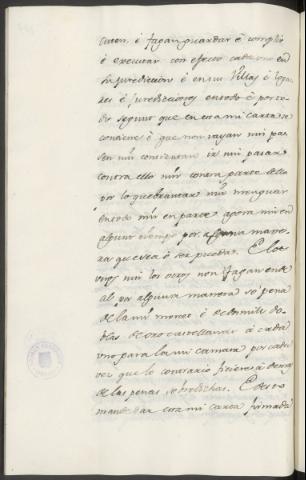 cuten é fagan guardar é complir
é executar con efecto cada uno en
su Juredicion é en sus Villas é lugares
é Jurediciones en todo é por todo
segunt que en esta mi carta se
contiene é que non vayan nin pasen
nin consientan ir nin pasar
contra ello nin contra parte dello
por lo quebrantar nin menguar
en todo nin en parte agora nin en
algunt tiempo por alguna manera
que sea ó ser pueda. E los
unos nin los otros non fagan ende
al por alguna manera so pena
de la mi merced é de dos mill do
blas de oro castellanas á cada
uno para la mi camara por cada
vez que lo contrario ficieren é demas
de las penas sobredichas. E desto
mandé dar esta mi carta firmada